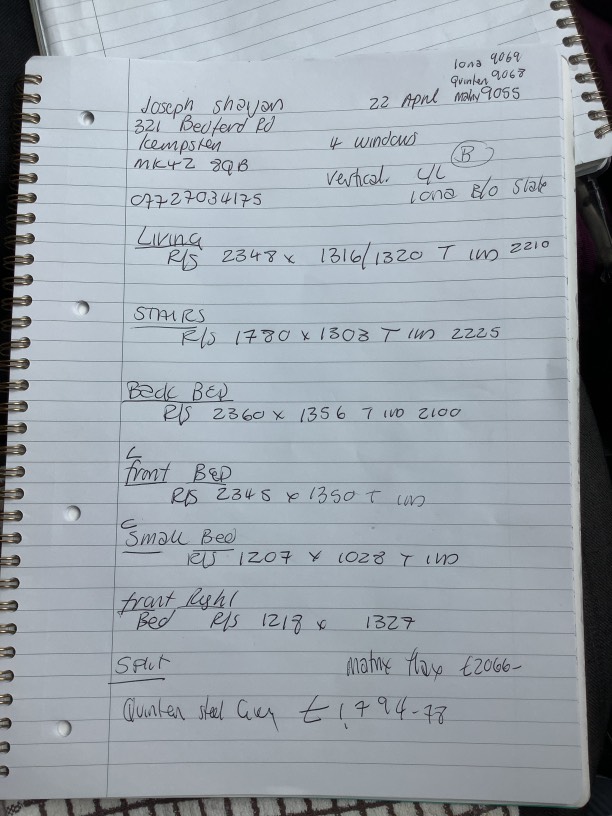 Iona 9069
Quinten 9068
22 April Matrix 9055
Joseph Shayan
321 Bedford Rd
Kempsten
MK42 8QB
07727034175
4 windows
Vertical. C/C (B)
Iona B/O Slate
Living
R/S 2348 x 1316/1320 T IW 2210
STAIRS
R/S 1780 x 1303 T IW 2225
Back BED
R/S 2360 x 1356 T IW 2100
C
front BED
R/S 2345 x 1350 T IW
C
Small Bed
R/S 1207 x 1028 T IW
front Right
Bed R/S 1218 x 1327
Split
Matrix flax £2066-
Quinten steel Grey £1,794-78